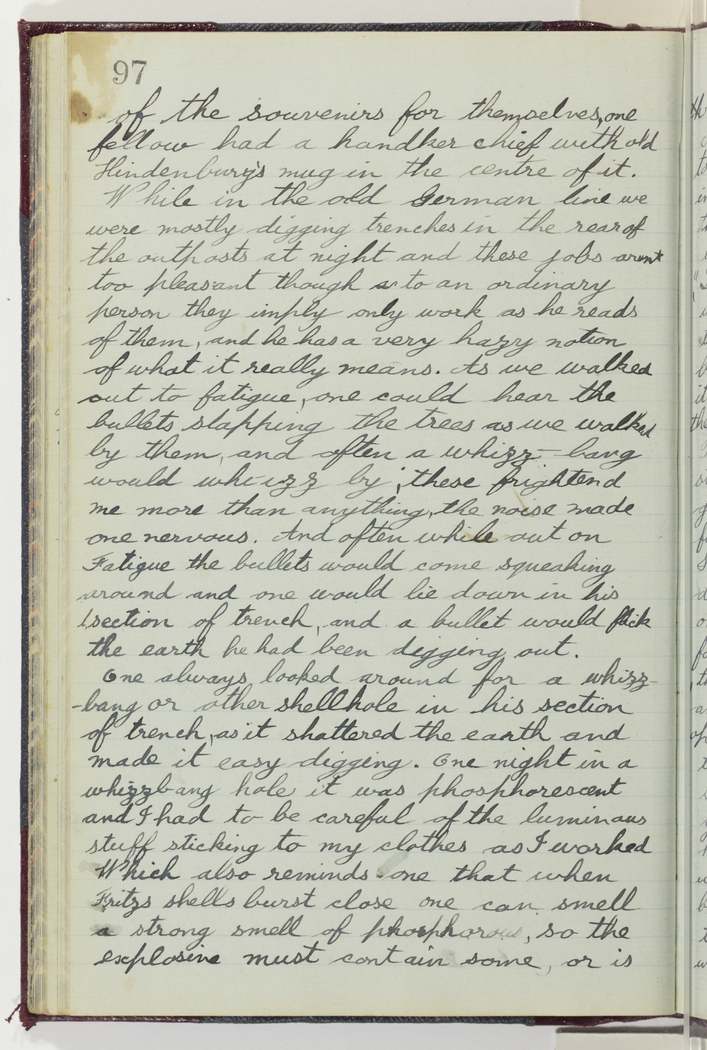 97
of the souvenirs for themselves, one
fellow had a handker chief with old
Hindenburg's mug in the centre of it.
While in the old German line we
were mostly digging trenches in the rear of
the outposts at night and these jobs arent
too pleasant though to an ordinary
person they imply only work as he reads
of them, and he has a very hazy notion
of what it really means. As we walked
out to fatigue, one could hear the
bullets slapping the trees as we walked
by them, and often a whizz-bang
would whizz by, these frightend
me more than anything, the noise made
one nervous. And often while out on
Fatigue the bullets would come squeaking
around and one would lie down in his
section of trench, and a bullet would flick
the earth he had been digging out.
One always looked around for a whizz-
-bang or other shellhole in his section
of trench, as it shattered the earth and
made it easy digging. One night in a
whizzbang hole it was phosphorescent
and I had to be careful of the luminous
stuff sticking to my clothes as I worked
Which also reminds one that when
Fritzs shells burst close one can smell
a strong smell of phosphorous, so the
explosive must contain some, or is